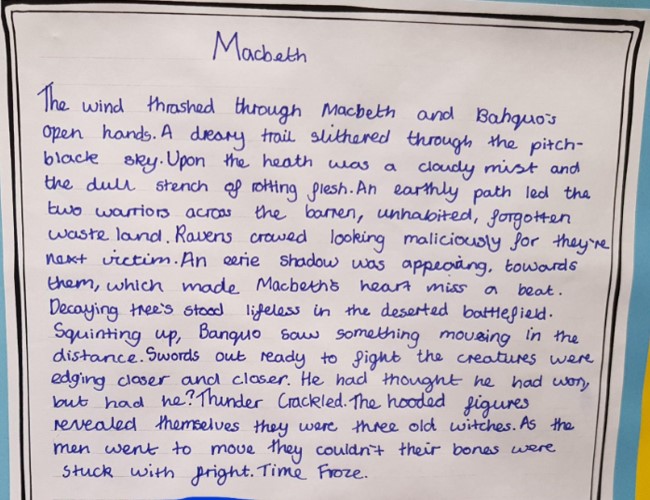 Macbeth
The wind thrashed through Macbeth and Bahquo's
open hands. A dreary trail slithered through the pitch-
black sky. Upon the heath was a cloudy mist and
the dull stench of rotting flesh. An earthly path led the
two warriors across the barren, unhabited, forgotten
waste land. Ravens crowed looking maliciously for they're
next victim. An eerie shadow was appeoing, towards
them, which made Macbeth's heart miss a beat.
Decaying tree's stood lifeless in the deserted battlefield.
Squinting up, Banquo saw something moveing in the
distance. Swords out ready to fight the creatures were
edging closer and closer. He had thought he had won,
but had he? Thunder Crackled. The hooded figures
revealed themselves they were three old witches. As the
men went to move they couldn't their bones were
stuck with fright. Time Froze.